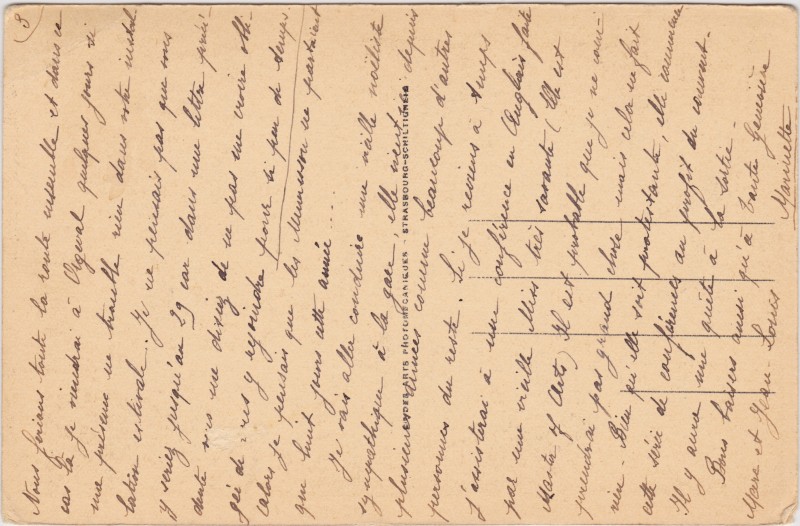 3)
Nous ferions toute la route ensemble et dans ce
cas là je viendrai à Orgeval quelques jours si
ma présence ne trouble rien dans votre instal
lation estivale. Je ne pensais pas que vous
y seriez jusqu'au 29 car dans une lettre précé-
dente vous me disiez de ne pas me croire obli
gée de vous y rejoindre pour si peu de temps.
Alors je pensais que les Munsson ne partaient
que huit jours cette année ....
Je vais aller conduire ma vieille noëliste
sympathique à la gare, elle vient depuis
plusieurs comme beaucoup d'autres
personnes du reste. Si je reviens à temps
j'assisterai à une conférence en Anglais faite
par une vieille Miss très savante (Elle est
Master of Arts) Il est probable que je ne com-
prendrai pas grand chose mais cela ne fait
rien. Bien qu'elle soit protestante, elle commence
cette série de conférences au profit du couvent.
Il y aura une quête à la sortie.
Bons baisers ainsi qu'à Tante Geneviève
Marc et Jean-Louis
Manuette
LENDER ARTS PHOTOMECANIQUES - STRASBOURG-SCHILTIGHEIM